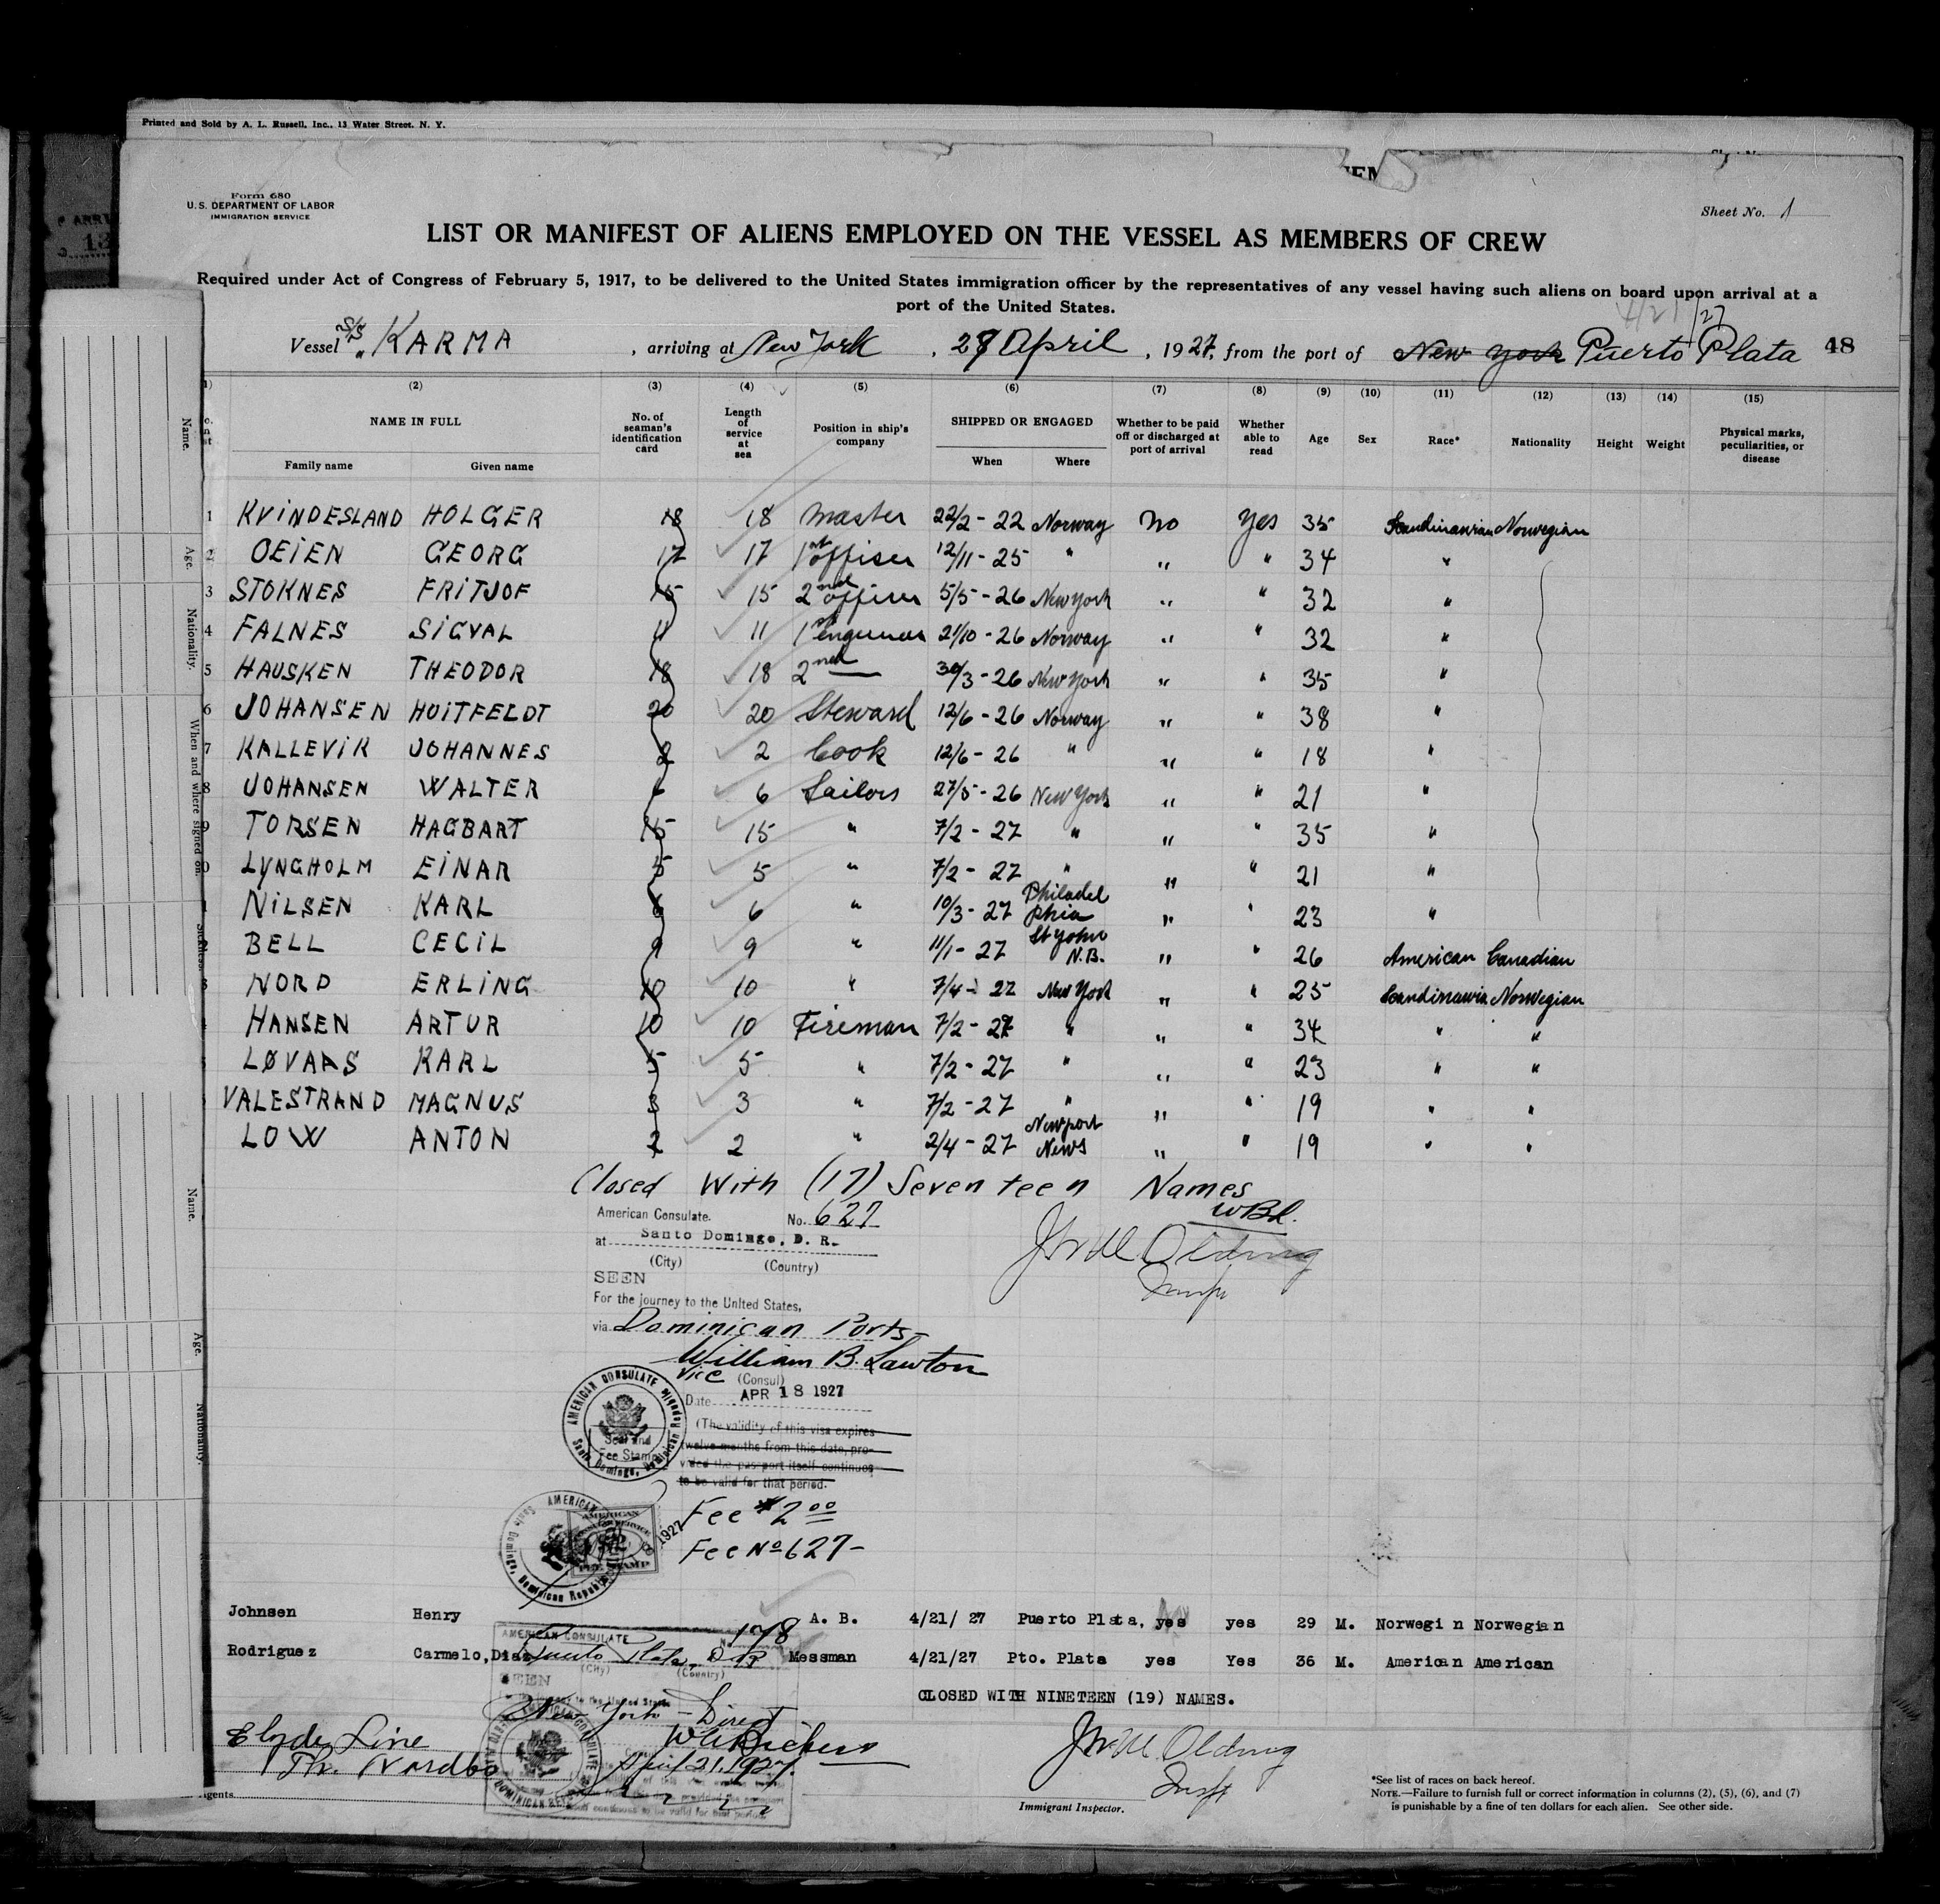 Printed and Sold by A. L. Russell, Inc., 13 Water Street, N. Y.
Form 680
U. S. DEPARTMENT OF LABOR
IMMIGRATION SERVICE
Sheet No. 1
LIST OR MANIFEST OF ALIENS EMPLOYED ON THE VESSEL AS MEMBERS OF CREW
Required under Act of Congress of February 5, 1917, to be delivered to the United States immigration officer by the representatives of any vessel having such aliens on board upon arrival at a
port of the United States.
4/21/27
Vessel S/S "KARMA, arriving at New York, 28 April, 1927, from the port of New York Puerto Plata 48
(2) (3) (4) (5) (6) (7) (8) (9) (10) (11) (12) (13) (14) (15)
NAME IN FULL No. of seaman's identification card Length of service at sea Position in ship's company SHIPPED OR ENGAGED Whether to be paid off or discharged at port of arrival Whether able to read Age Sex Race* Nationality Height Weight Physical marks, peculiarities, or disease
Family name Given name When Where
1 KVINDESLAND HOLGER 18 18 Master 22/2 - 22 Norway No Yes 35 Scandinavian Norwegian
2 OEIEN GEORG 17 17 1st offiser 12/11 - 25 " " " 34 "
3 STOKNES FRITJOF 15 15 2nd offiser 5/5 - 26 New York " " 32 "
4 FALNES SIGVAL 11 11 1st engineer 21/10 - 26 Norway " " 32 "
5 HAUSKEN THEODOR 18 18 2nd — 30/3 - 26 New York " " 35 "
6 JOHANSEN HUITFELDT 20 20 Steward 12/6 - 26 Norway " " 38 "
7 KALLEVIK JOHANNES 2 2 Cook 12/6 - 26 " " " 18 "
8 JOHANSEN WALTER 6 6 Sailors 27/5 - 26 New York " " 21 "
9 TORSEN HAGBART 15 15 " 7/2 - 27 " " " 35 "
0 LYNGHOLM EINAR 5 5 " 7/2 - 27 " " " 21 "
NILSEN KARL 6 6 " 10/3 - 27 Philadelphia " " 23 "
BELL CECIL 9 9 " 11/1 - 27 St John N.B. " " 26 American Canadian
NORD ERLING 10 10 " 7/4 - 27 New York " " 25 Scandinawia Norwegian
HANSEN ARTUR 10 10 Fireman 7/2 - 27 " " " 34 " "
LØVAAS KARL 5 5 " 7/2 - 27 " " " 23 " "
VALESTRAND MAGNUS 3 3 " 7/2 - 27 " " " 19 " "
LOW ANTON 2 2 " 2/4 - 27 Newport News " " 19 " "
Closed With (17) Seventeen Names
WBL.
American Consulate. No. 627
at Santo Domingo, D. R.
(City) (Country)
SEEN
For the journey to the United States,
via Dominican Ports
William B. Lawton
Vice (Consul)
Date APR 18 1927
(The validity of this visa expires
twelve months from this date, provided the passport itself continues
to be valid for that period.
AMERICAN CONSULATE
Santo Domingo, Dominican Republic
Seal and
Fee Stamp
Fee $2.00
Fee No 627-
Johnsen Henry A. B. 4/21/ 27 Puerto Plata, yes yes 29 M. Norwegi n Norwegian
Rodriguez Carmelo, Dias Messman 4/21/27 Pto. Plata yes Yes 36 M. American American
AMERICAN CONSULATE No. 178
Puerto Plata, D.R.
(City) (Country)
SEEN
CLOSED WITH NINETEEN (19) NAMES.
New York - Direct
April 21, 1927
Clyde Line
Th. Nordbo
Agents.
Immigrant Inspector.
*See list of races on back hereof.
NOTE.—Failure to furnish full or correct information in columns (2), (5), (6), and (7)
is punishable by a fine of ten dollars for each alien. See other side.
Name.
Age.
Nationality.
When and where signed on.
Sickness.
Name.
Age.
Nationality.